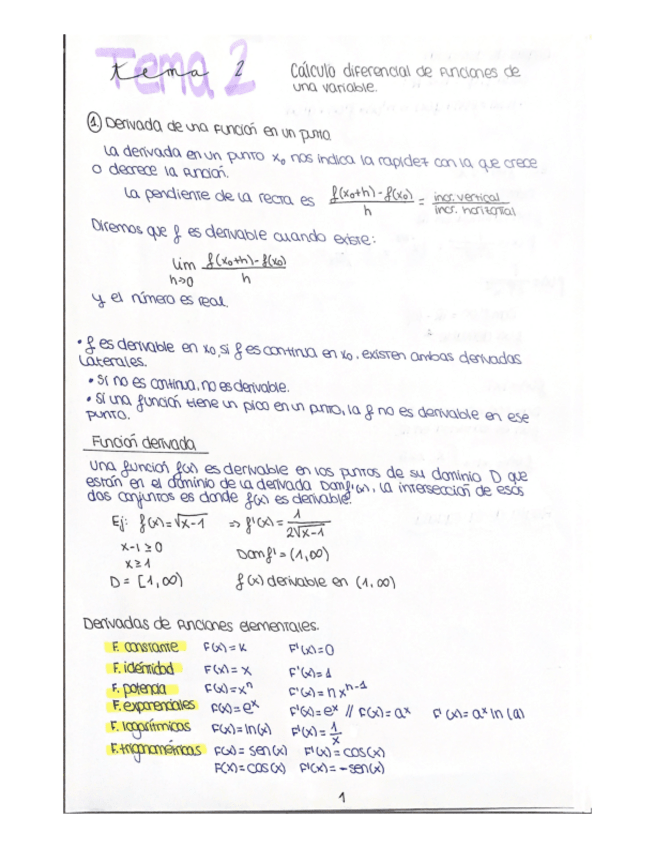 Tema 2
tema 2
Cálculo diferencial de funciones de
una variable.
① Derivada de una función en un punto
La derivada en un punto x₀ nos indica la rapidez con la que crece
o decrece la función.
La pendiente de la recta es (f(x₀+h)-f(x₀))/h = incr. vertical/incr. horizontal
Diremos que f es derivable cuando existe:
lim h→0 (f(x₀+h)-f(x₀))/h
y el número es real.
• f es derivable en x₀, si f es continua en x₀. existen ambas derivadas
laterales.
• Si no es continua, no es derivable.
• Si una función tiene un pico en un punto, la f no es derivable en ese
punto.
Función derivada
Una función f(x) es derivable en los puntos de su dominio D que
están en el dominio de la derivada Domf'(x), la intersección de esos
dos conjuntos es donde f(x) es derivable.
Ej: f(x)=√x-1 ⇒ f'(x)= 1/(2√x-1)
x-1≥0 Domf' = (1,∞)
x≥1
D = [1,∞) f(x) derivable en (1,∞)
Derivadas de funciones elementales.
F. constante F(x)=k F'(x)=0
F. identidad F(x)=x F'(x)=1
F. potencia F(x)=xⁿ F'(x)=nxⁿ⁻¹
F. exponenciales F(x)=eˣ F'(x)=eˣ // F(x)=aˣ F'(x)=aˣ ln(a)
F. logarítmicas F(x)=ln(x) F'(x)=1/x
F. trigonométricas F(x)=sen(x) F'(x)=cos(x)
F(x)=cos(x) F'(x)=-sen(x)
1